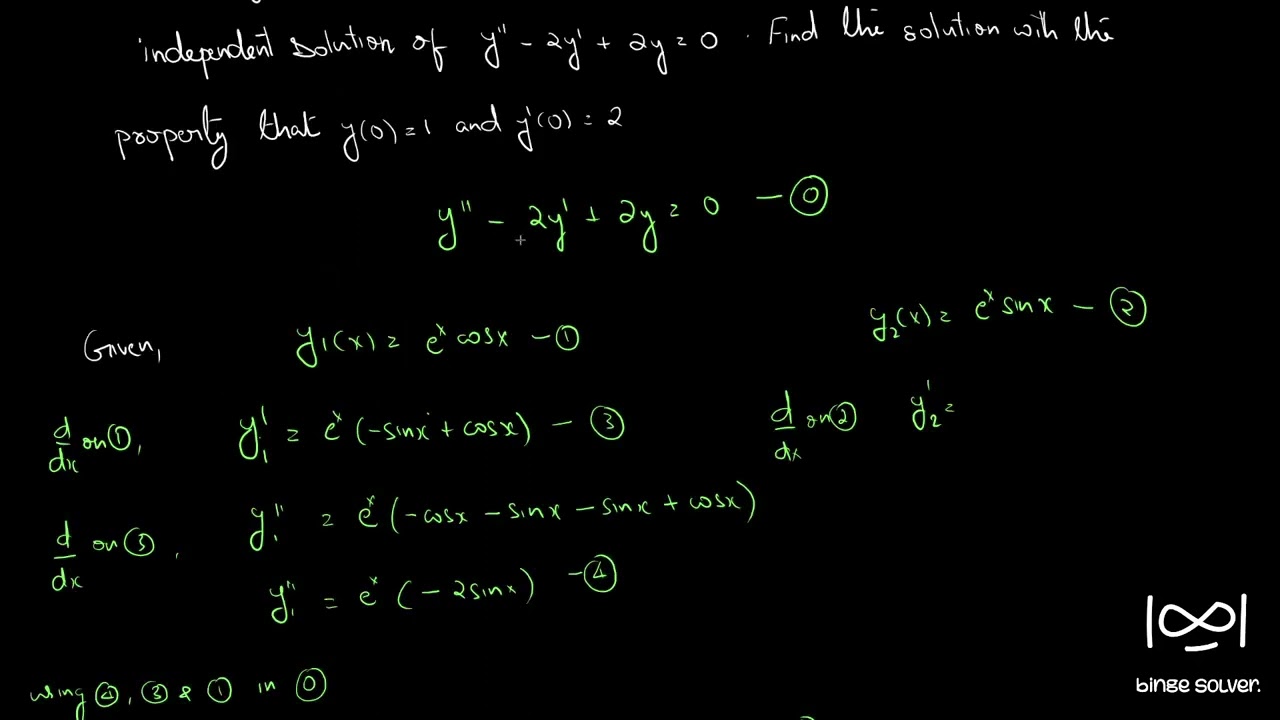 independent solution of y'' - 2y' + 2y = 0 . Find the solution with the
property that y(0) = 1 and y'(0) = 2
y'' - 2y' + 2y = 0 — ⓪
Given, y₁(x) = eˣ cosx — ① y₂(x) = eˣ sinx — ②
d/dx on ①, y₁' = eˣ (-sinx + cosx) — ③ d/dx on ② y₂' =
d/dx on ③, y₁'' = eˣ (-cosx - sinx - sinx + cosx)
y₁'' = eˣ (-2sinx) — ④
using ④, ③ & ① in ⓪
binge solver.